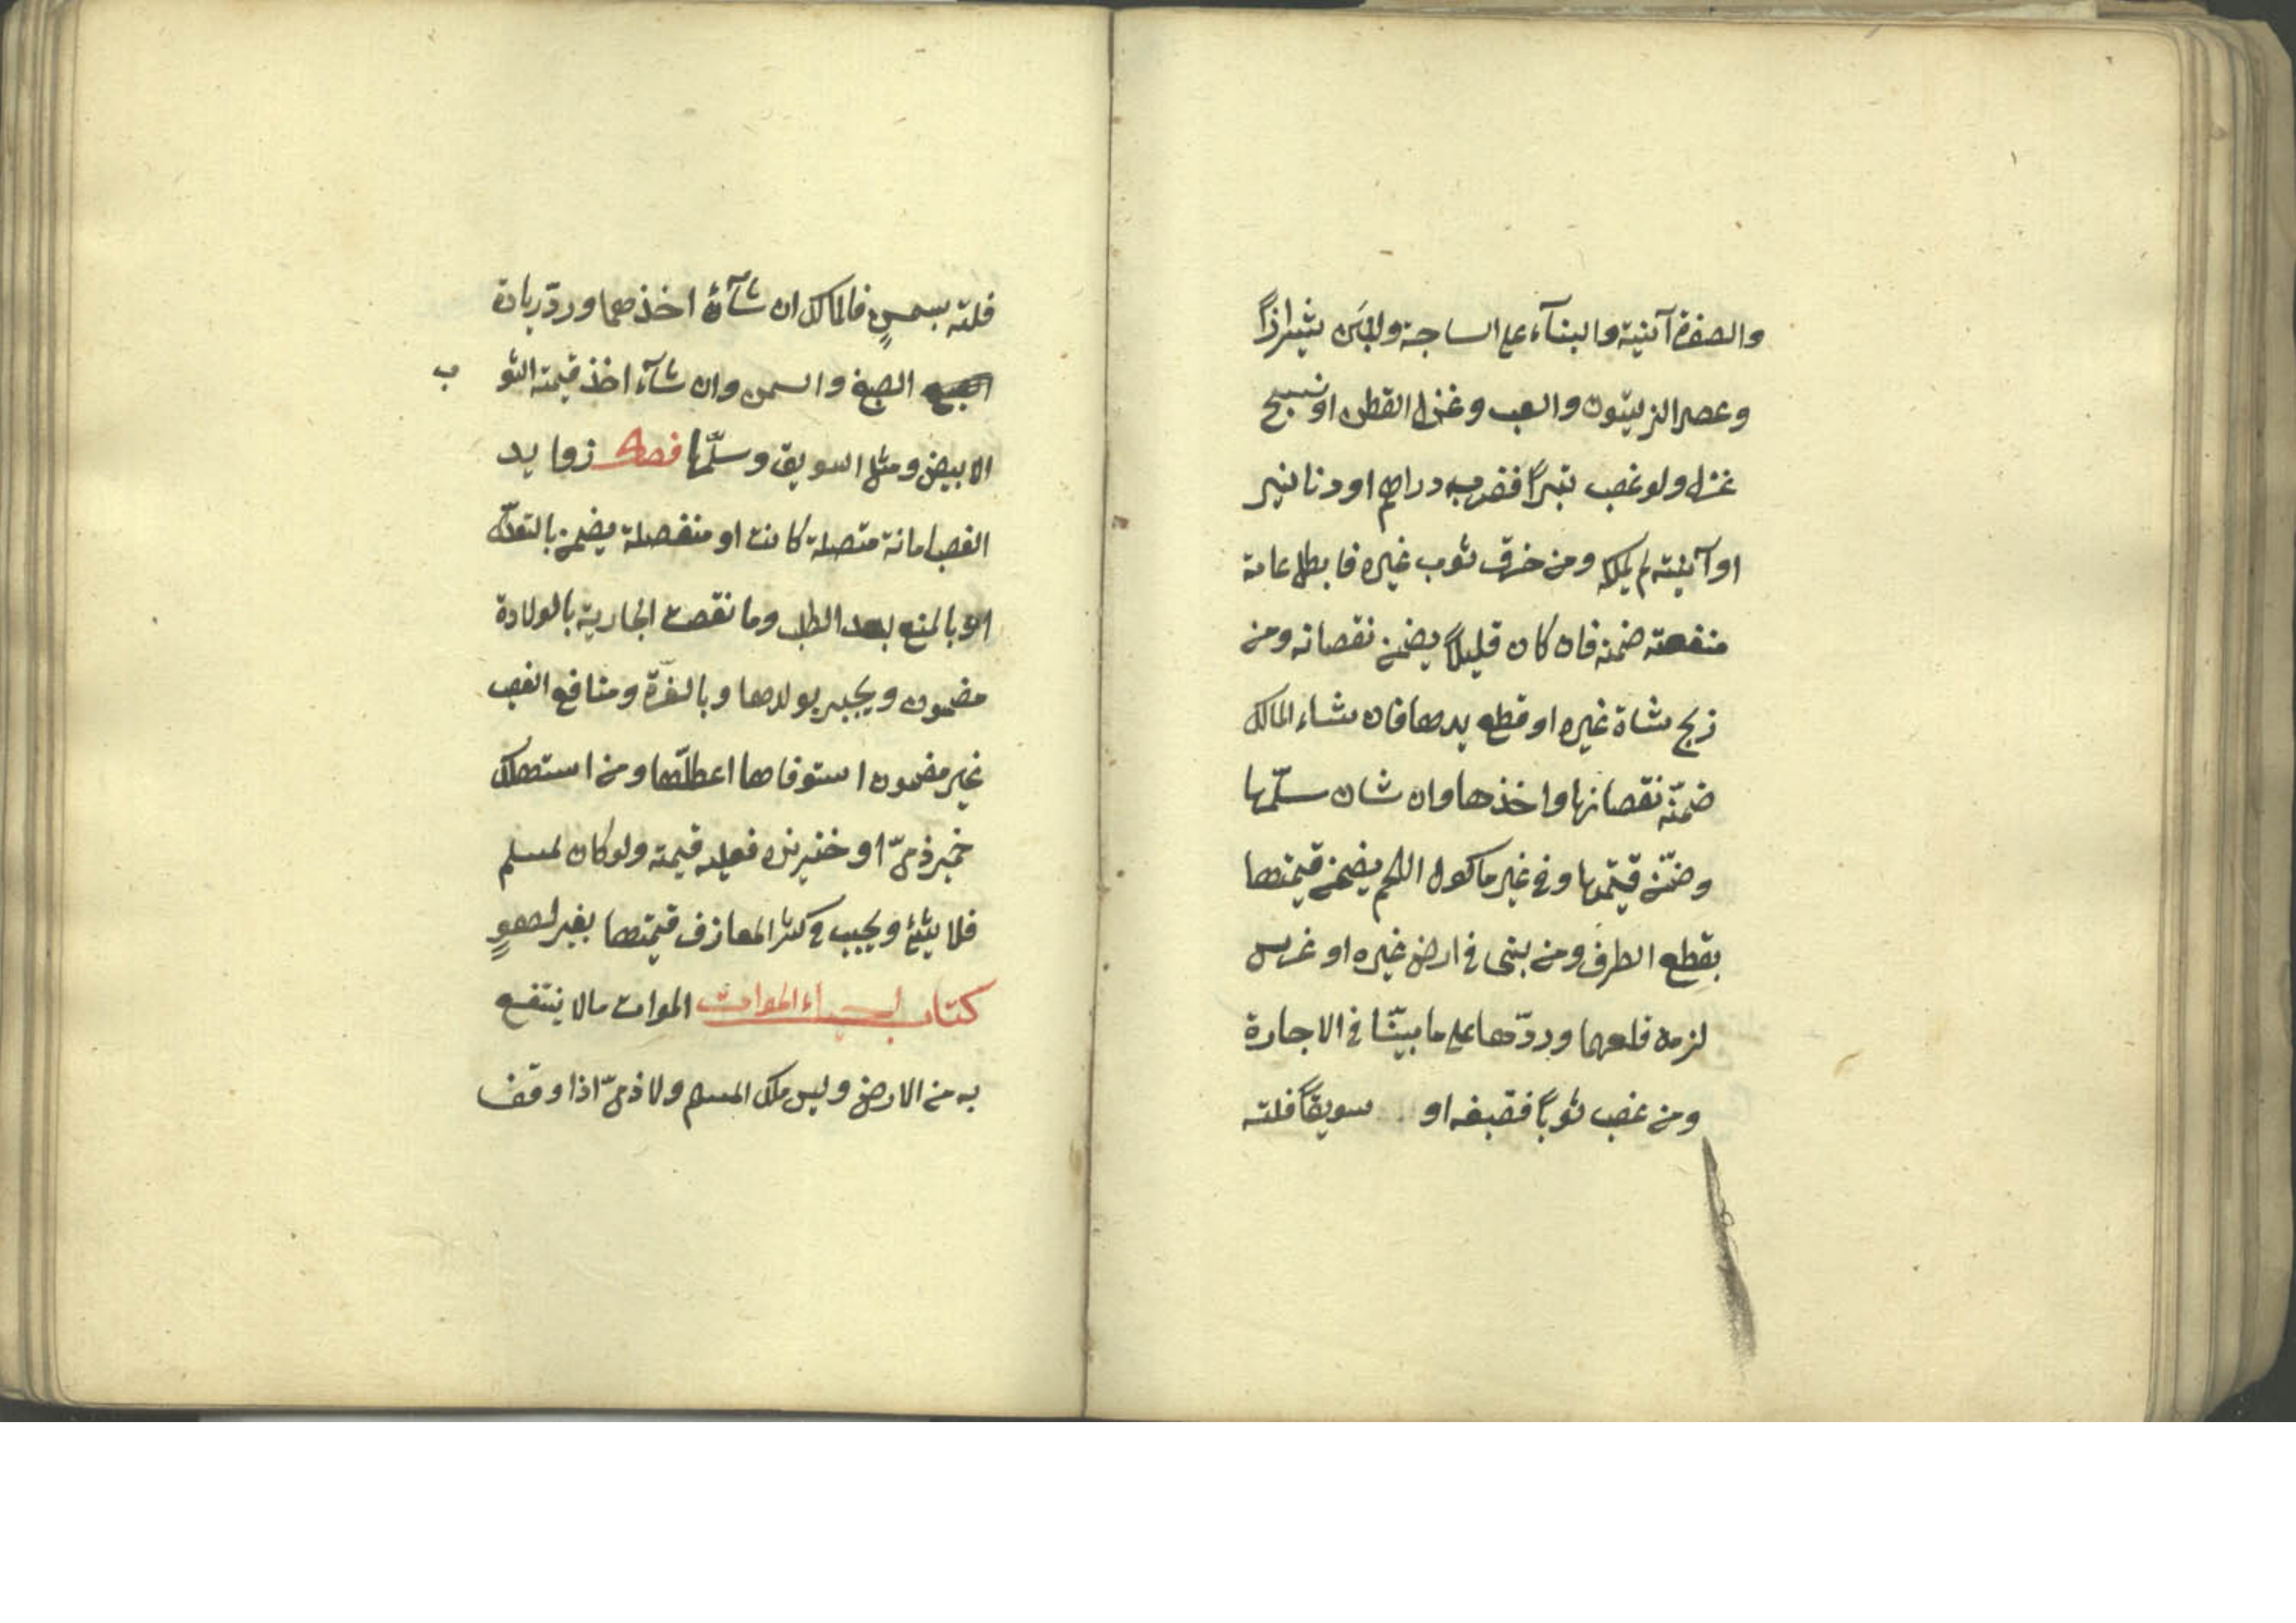 والصفرة آنية والبنآء على الساجة ولبَن شيرازاً
وعصر الزيتون والعنب وغزل القطن او نسج
غزل ولو غصب تبراً فضربه دراهم او دنانير
او آنية لم يملكه ومن خرق ثوب غيره فابطل عامة
منفعته ضمنه فان كان قليلاً يضمن نقصانه ومن
ذبح شاة غيره او قطع يدها فان شاء المالك
ضمنّه نقصانها واخذها وان شان سلّمها
وضمّنه قيمتها وفي غير ماكول اللحم يضمن قيمتها
بقطع الطرف ومن بنى في ارض غيره او غرس
لزمه قلعهما وردّها على ما بينّا في الاجارة
ومن غصب ثوباً فصبغه او سويقاً فلته
فلته بسمنٍ فالمالك ان شآء اخذهما وردّ زيادة
الصبغ والسمن وان شآء اخذ قيمته الثوب
الابيض ومثل السويق وسلّمها فصل زوايد
الغصب امانة متصلة كانت او منفصلة يضمن بالتعدّي
او بالمنع بعد الطلب وما نقصت الجارية بالولادة
مضمون ويجبر بولدها وبالغرّة ومنافع الغصب
غير مضمون استوفاها اعطلّها ومن استهلك
خمر ذمىّ او خنزيره فعليه قيمته ولو كان لمسلم
فلا شئ ويجب في كسر المعازف قيمتها بغير لهوٍ
كتاب احياء الموات الموات مالا ينتفع
به من الارض وليس ملك المسلم ولا ذمىّ اذا وقف